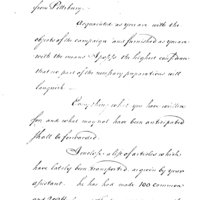 from Pittsburg.
Acquainted as you are with the
objects of the campaign and furnished as you are
with the means I feel the highest confidence
that no part of the necessary preparations will
languish —
Every thing which you have written
for and what may not have been anticipated
shall be forwarded.
I enclose a list of articles which
have lately been transported, require by your
assistant. he has had 100 common
and